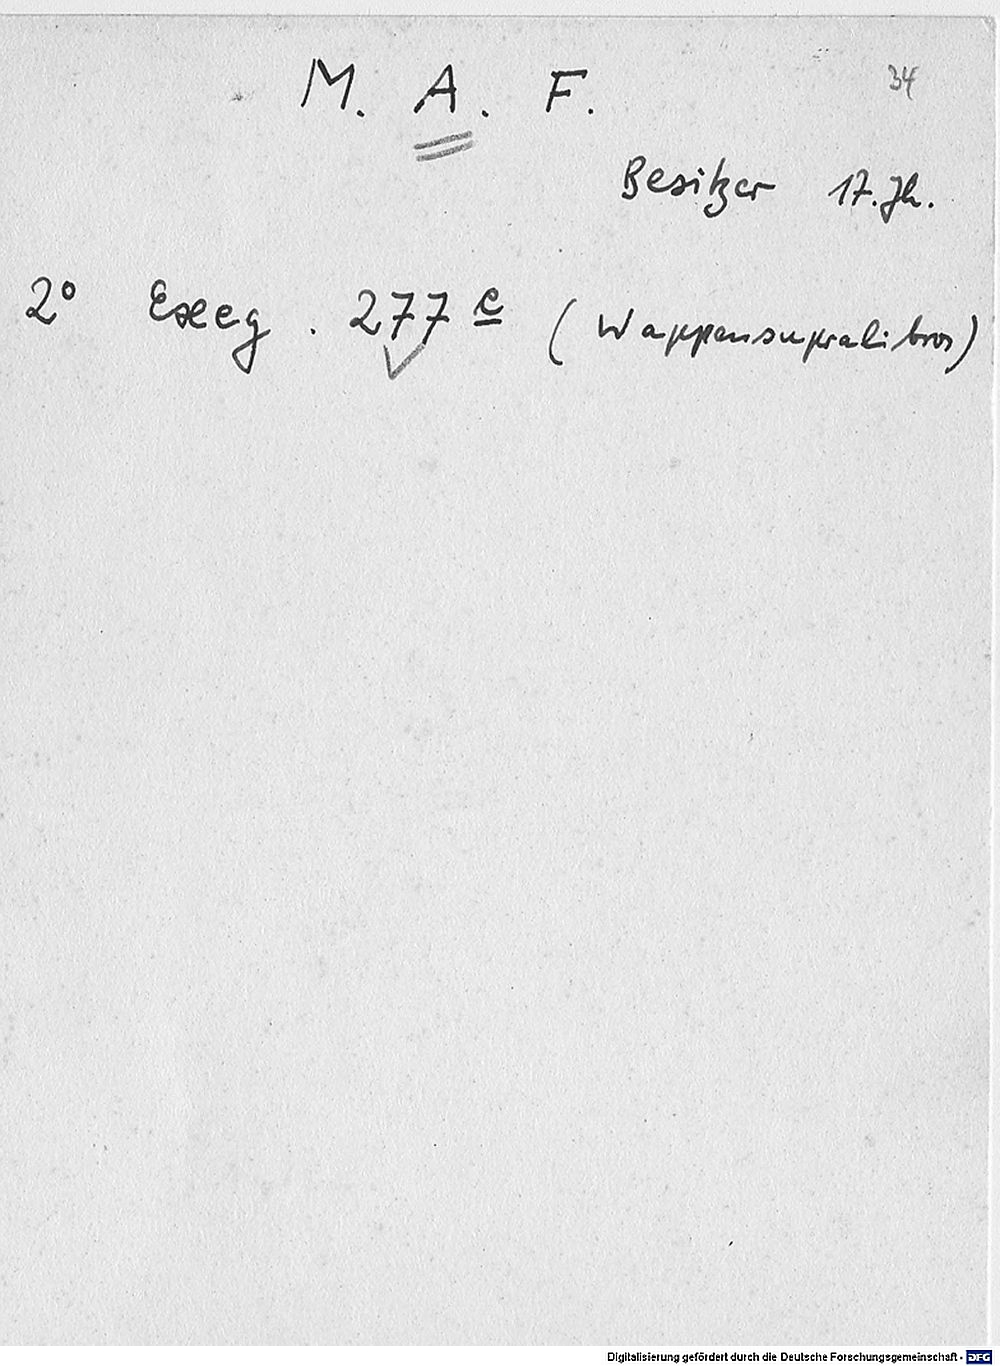 M. A. F.
34
Besitzer 17. Jh.
2° Exeg. 277 e (Wappensupralibros)
Digitalisierung gefördert durch die Deutsche Forschungsgemeinschaft - DFG